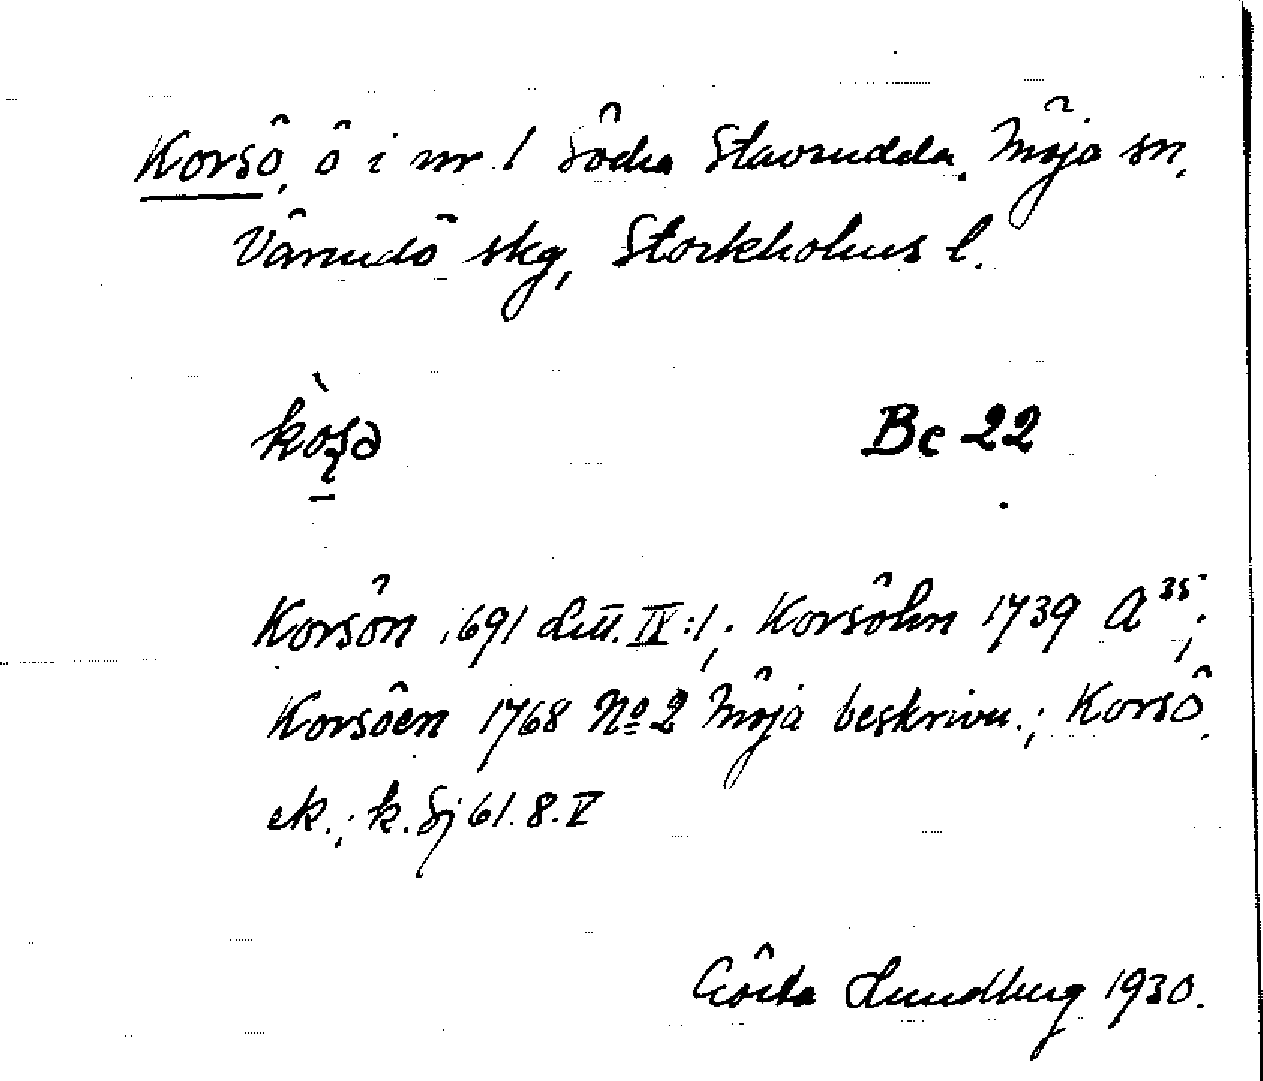 Korsö, ö i nr 1 Södra Stavsudda, Möja sn,
Värmdö skg, Stockholms l.
Bc 22
Korsön 1691 Litt. IV:1; Korsöhn 1739 A 35;
Korsöen 1768 No 2 Möja beskrivn.; Korsö
ek.; k. Sj 61. 8. V
Gösta Lundberg 1930.